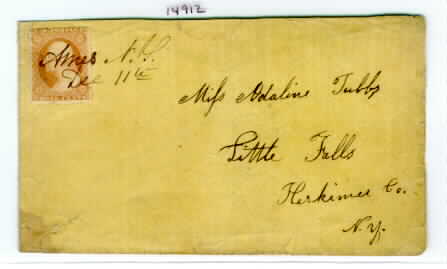 14912
Ames N.Y.
Dec 11th
Miss Adaline Tubbs
Little Falls
Herkimer Co.
N.Y.